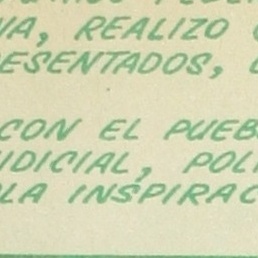 VA, REALIZO
ESENTADOS,
CON EL PUEB
UDICIAL, POLI
LA INSPIRAC